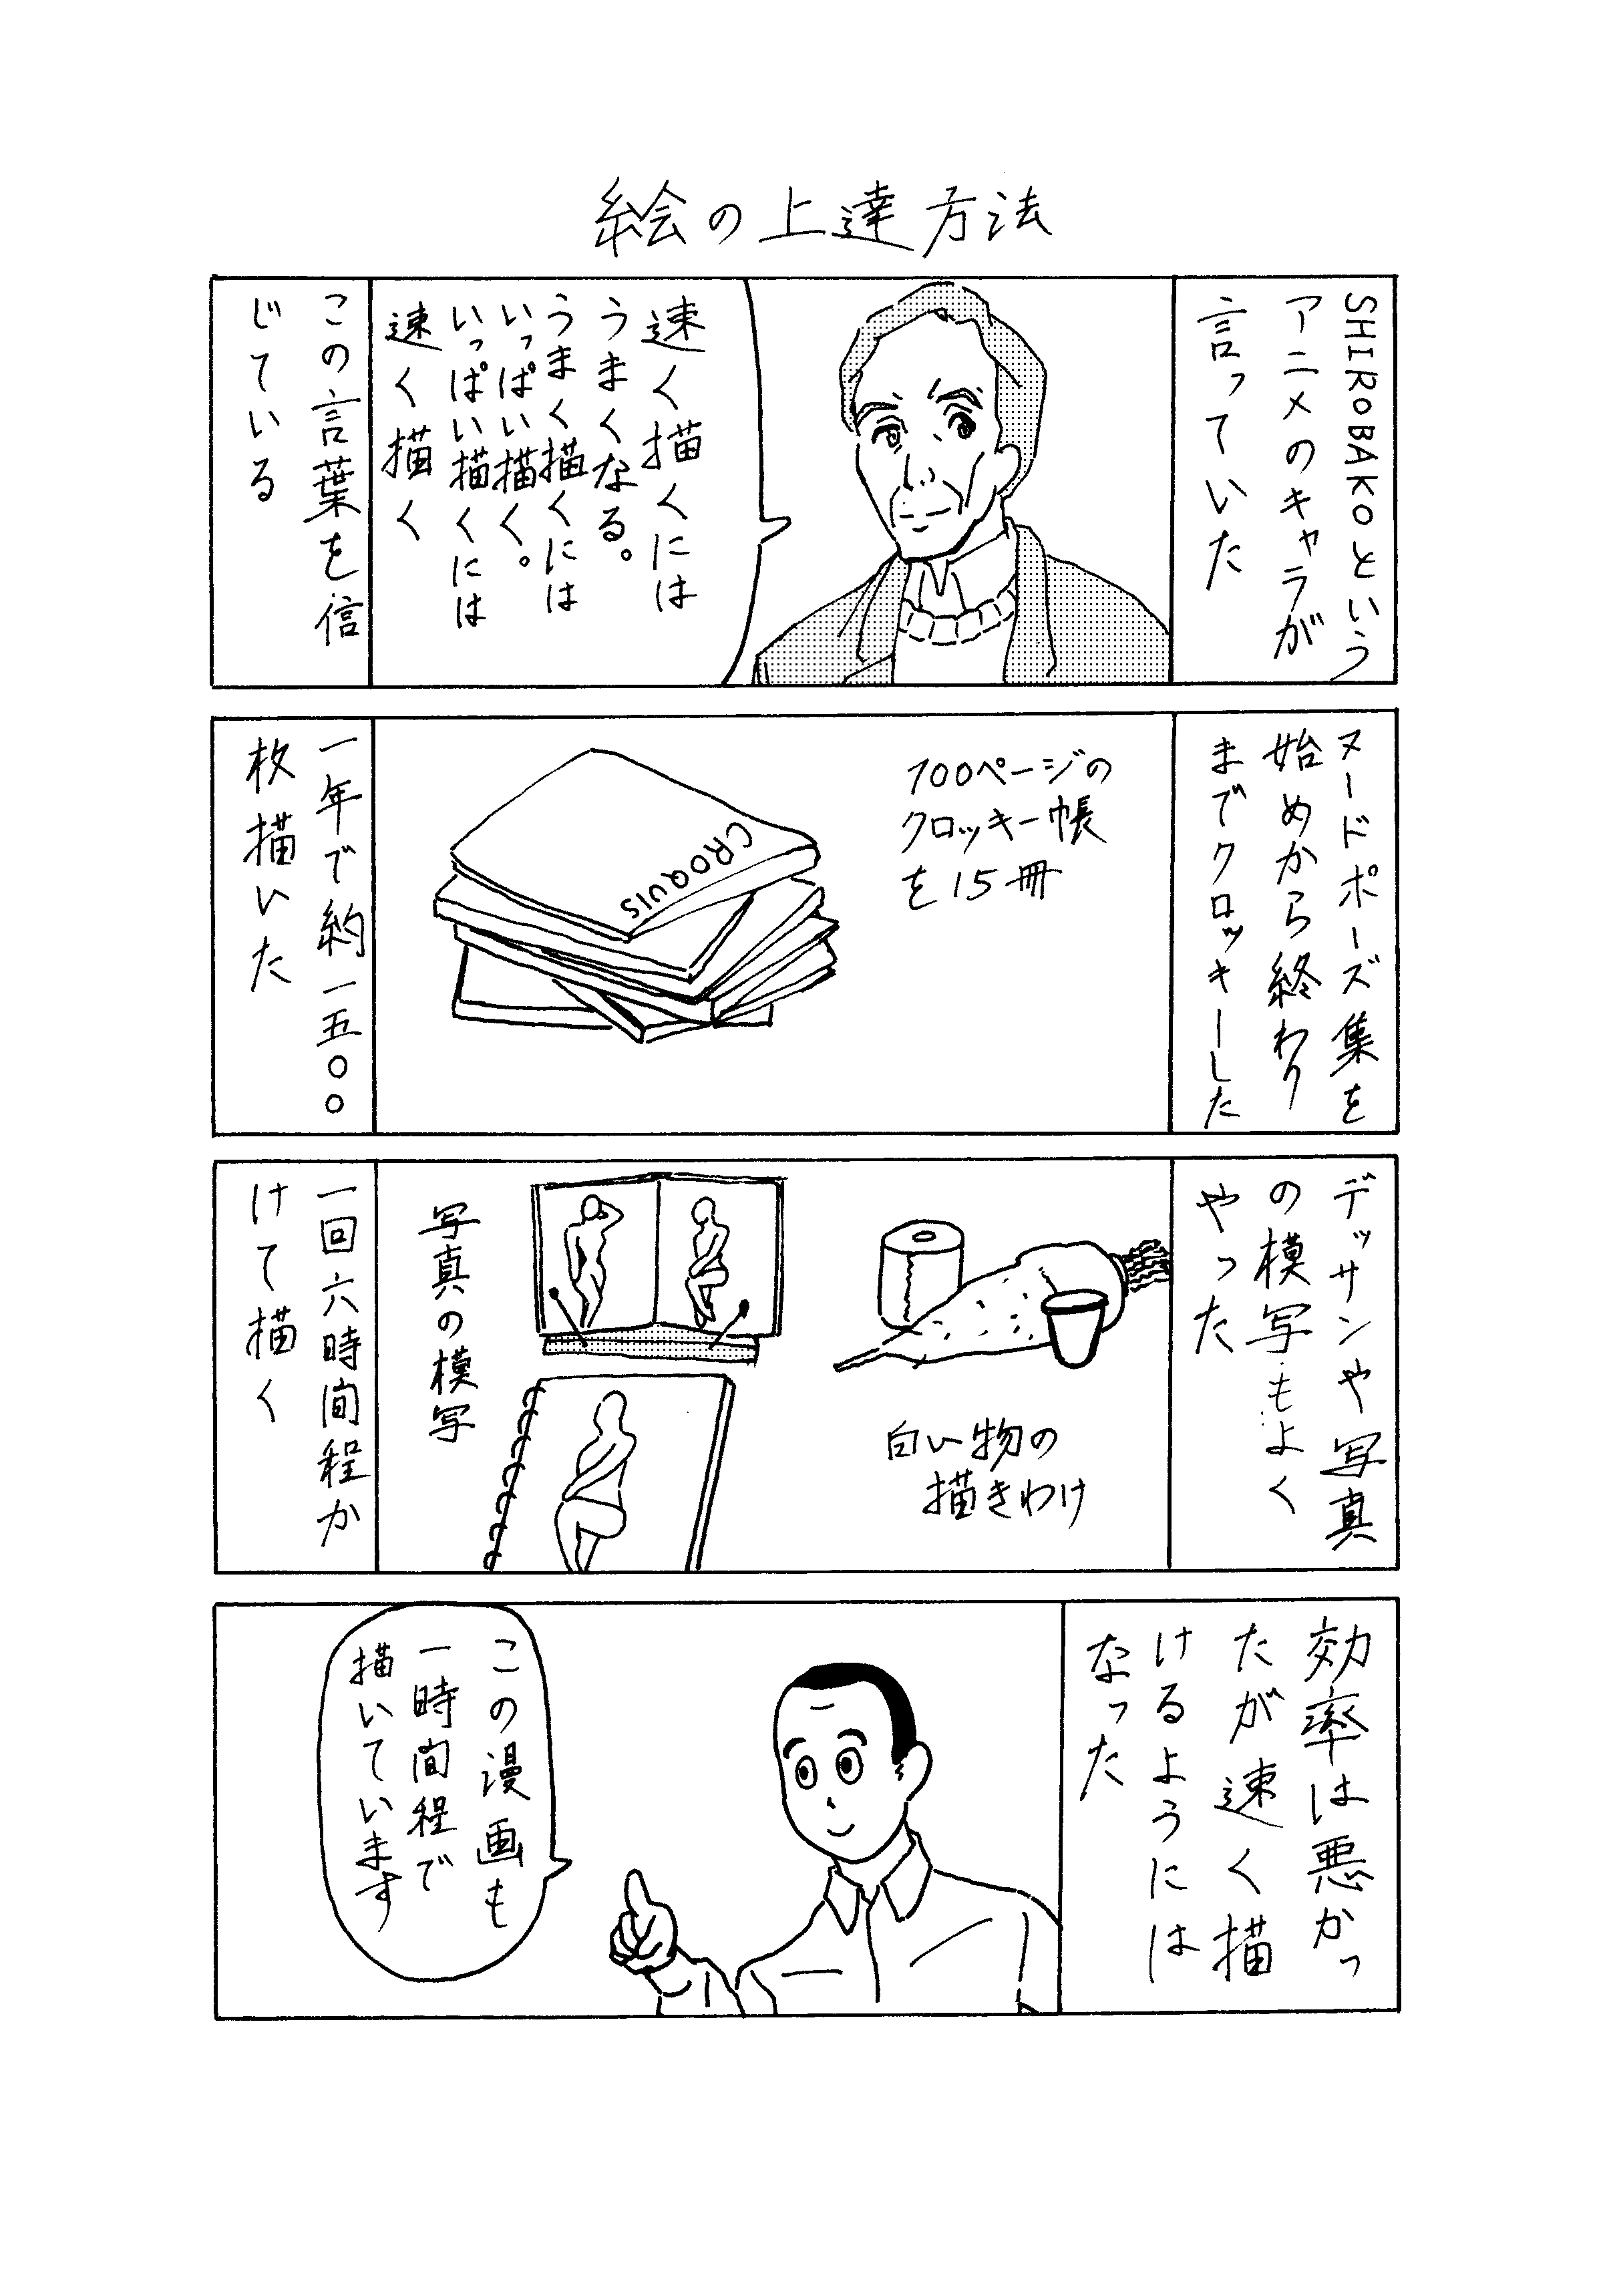 絵の上達方法
SHIROBAKOという
アニメのキャラが
言っていた
速く描くには
うまくなる。
うまく描くには
いっぱい描く。
いっぱい描くには
速く描く
この言葉を信
じている
ヌードポーズ集を
始めから終わり
までクロッキーした
100ページの
クロッキー帳
を15冊
CROQUIS
一年で約一五〇〇
枚描いた
デッサンや写真
の模写もよく
やった
白い物の
描きわけ
写真の模写
一回六時間程か
けて描く
効率は悪かっ
たが速く描
けるようには
なった
この漫画も
一時間程で
描いています